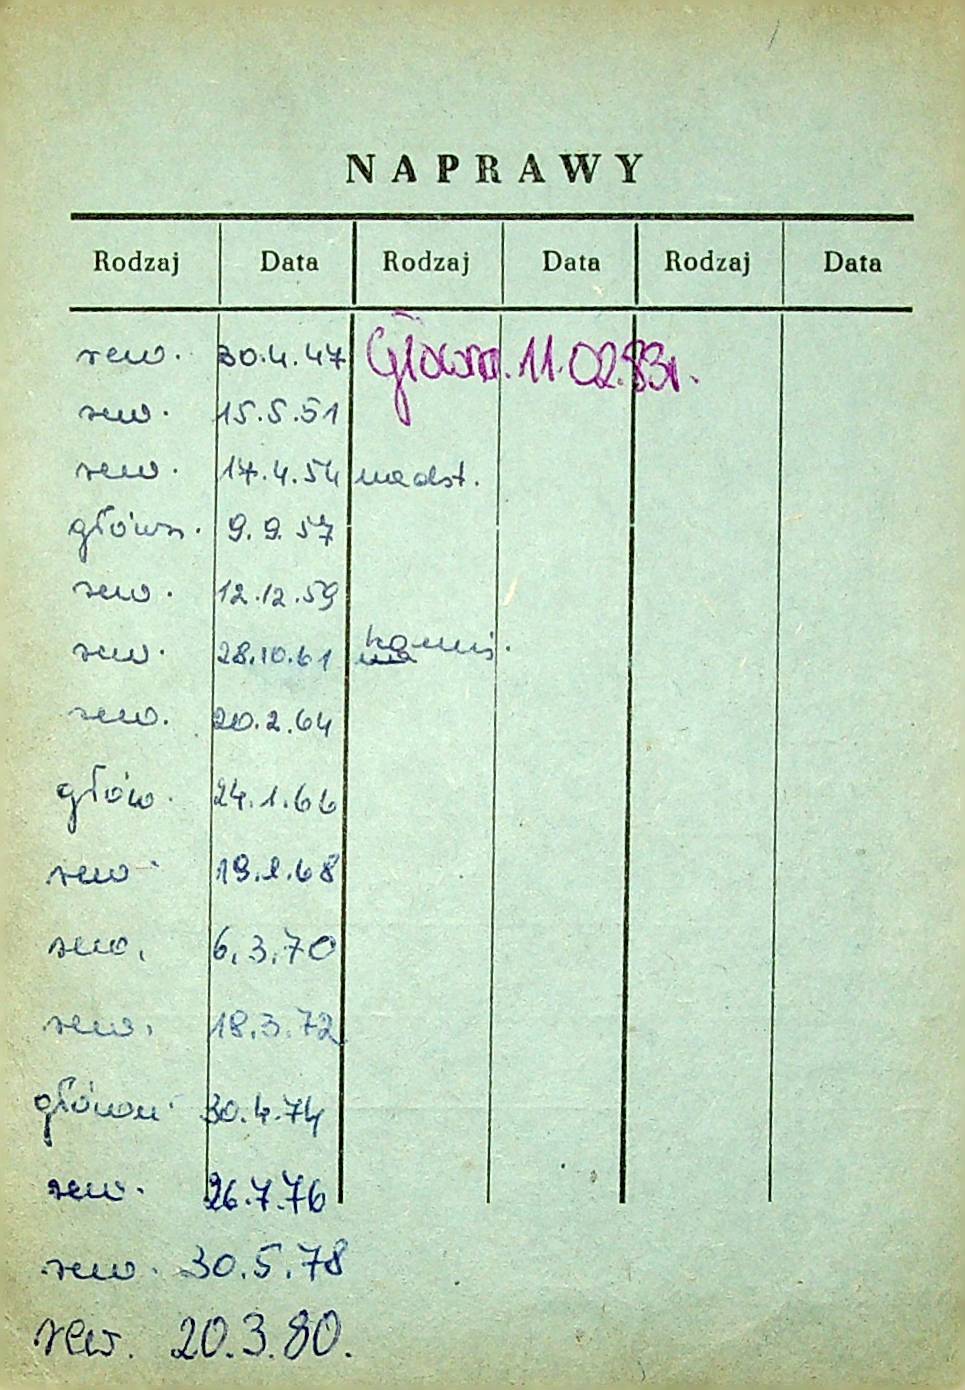 NAPRAWY
Rodzaj Data Rodzaj Data Rodzaj Data
rew. 30.4.47 Główna. 11.02.83r.
rew. 15.5.51
rew. 17.4.54 nadst.
główn. 9.9.57
rew. 12.12.59
rew. 28.10.61
rew. 20.2.64
głów. 24.1.66
rew. 19.2.68
rew. 6.3.70
rew. 18.3.72
główn. 30.4.74
rew. 26.7.76
rew. 30.5.78
rew. 20.3.80.